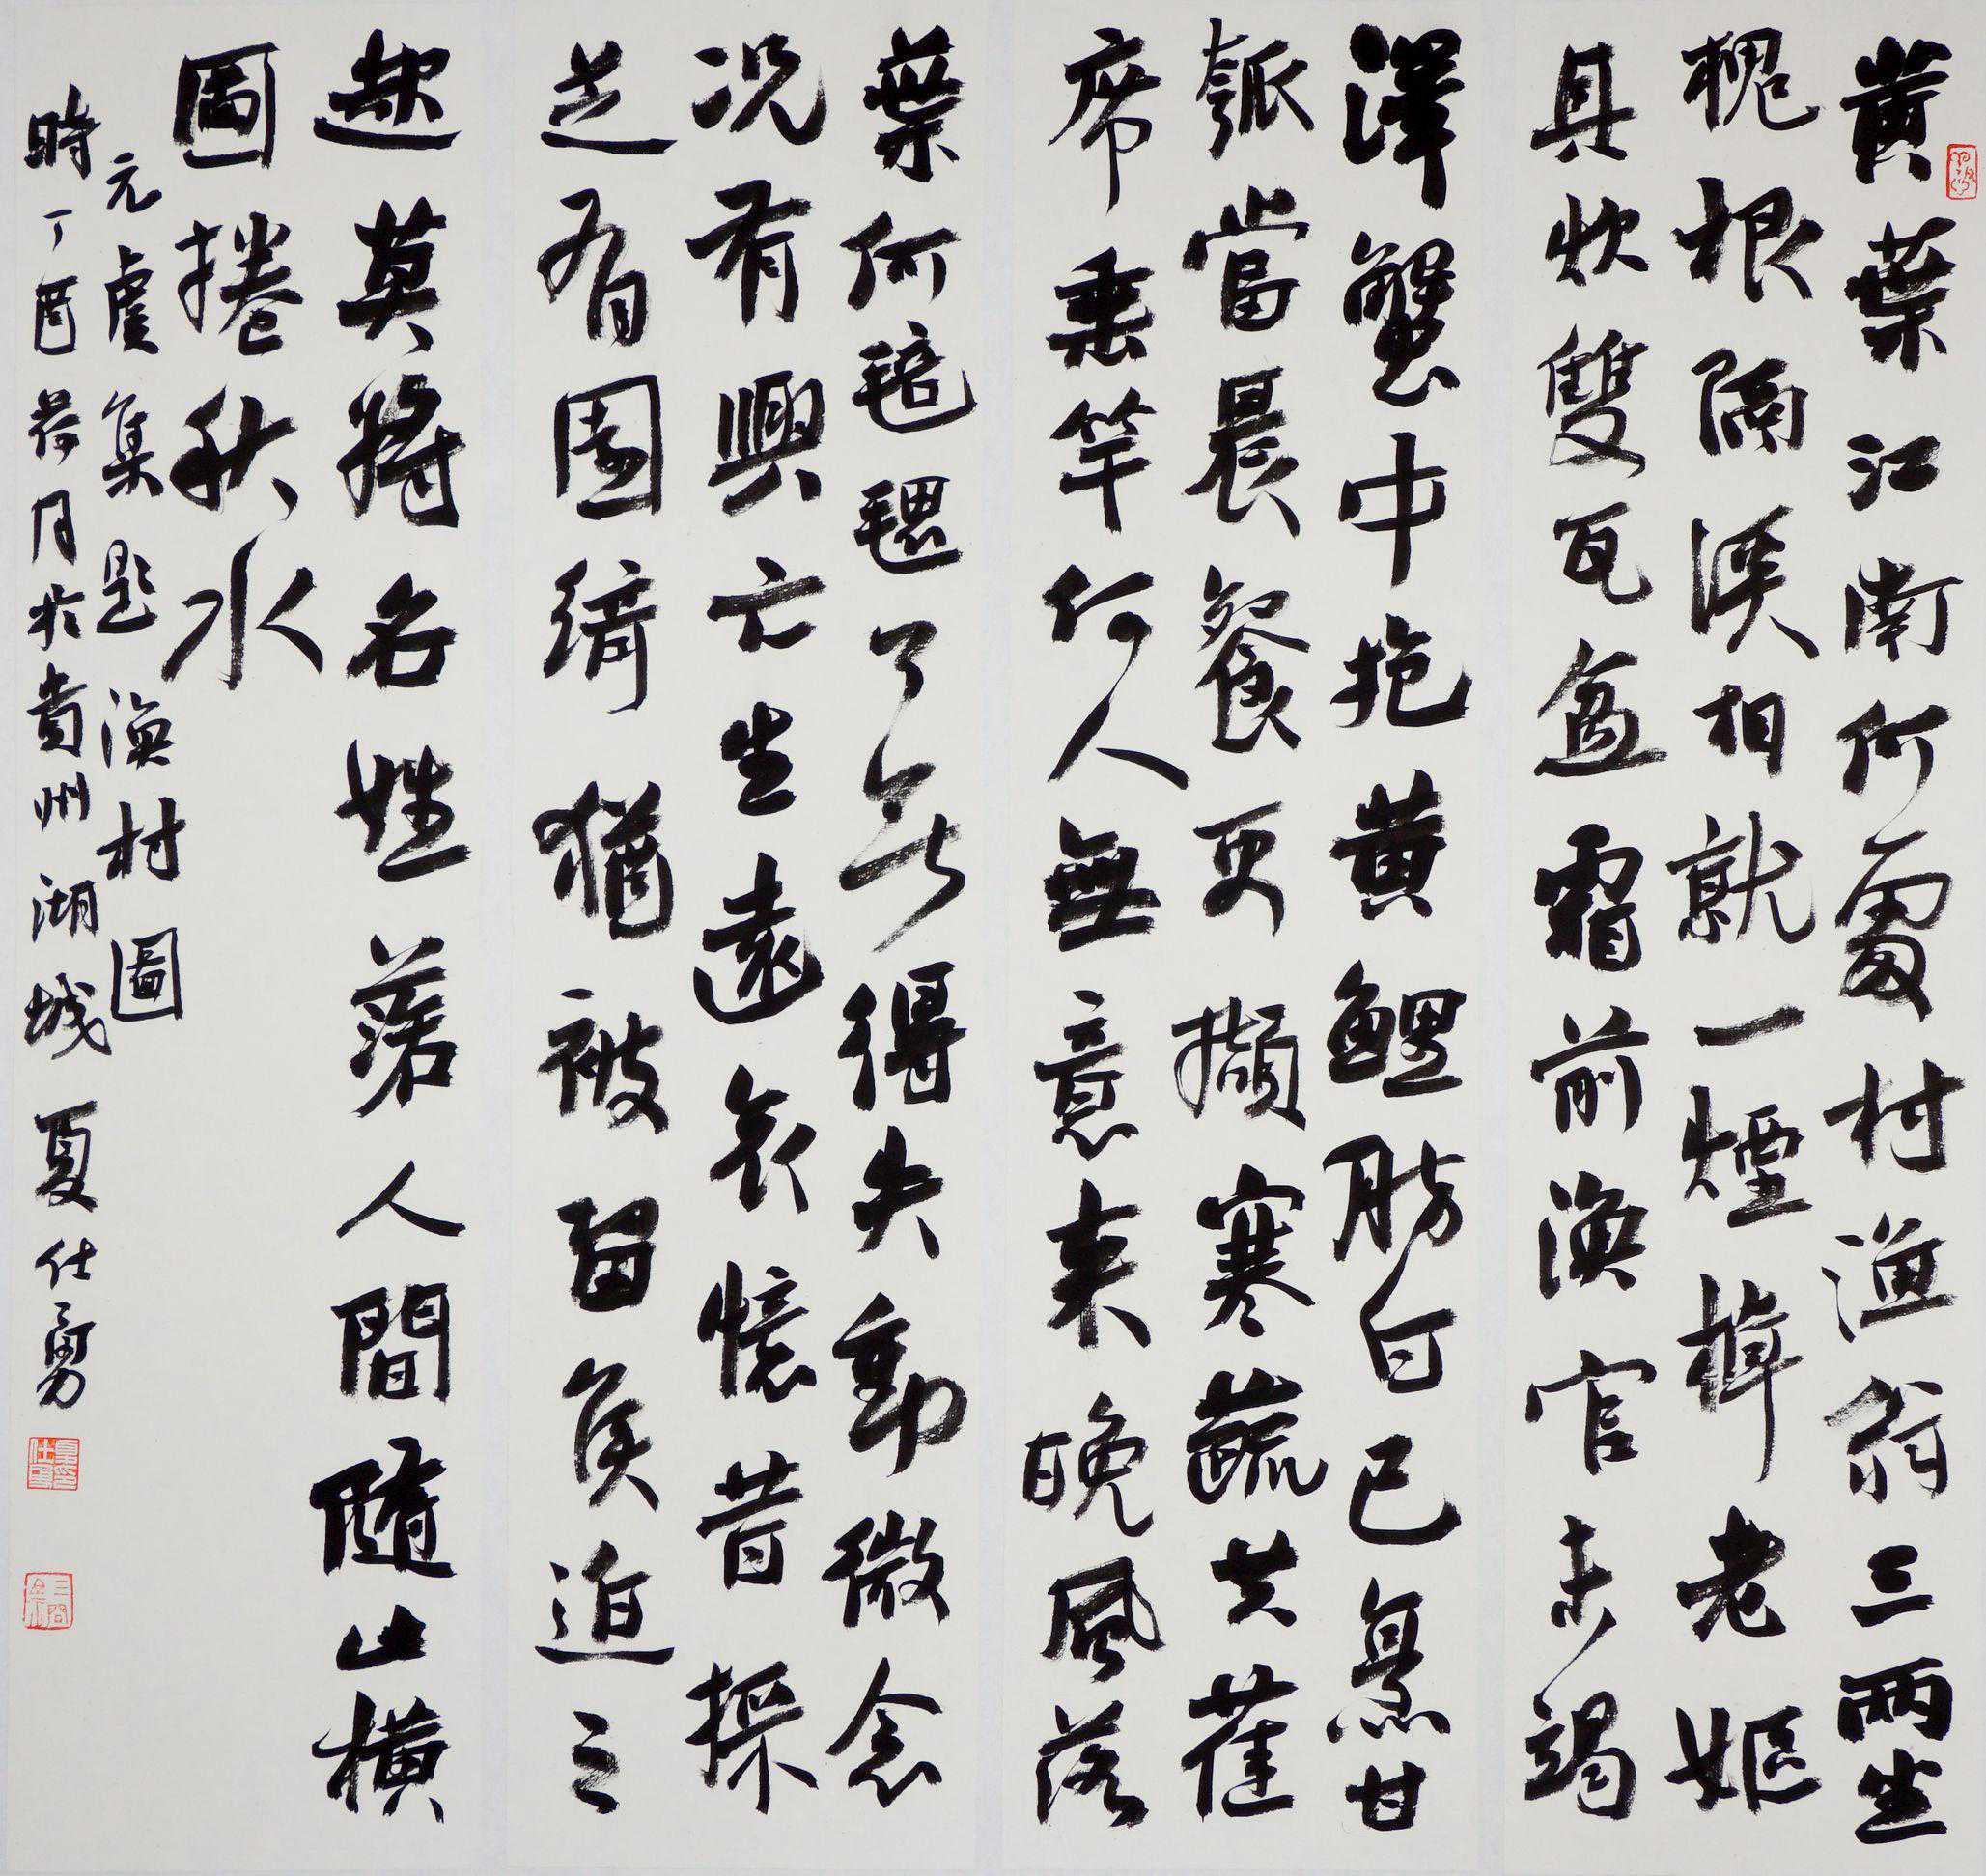 黄葉江南何處村漁翁三兩坐
槐根隔溪相就一煙棹老嫗
具炊雙瓦盆霜前漁官未竭
澤蟹中抱黄鯉肪白已烹甘
瓠當晨餐更擷寒蔬共萑
席垂竿何人無意來晚風落
葉何毰毸了無得失動微念
况有興亡生遠哀憶昔採
芝有園綺猶被留侯迫之
起莫將名姓落人間隨此橫
圖捲秋水
元虞集題漁村圖
時丁酉荷月於貴州湖城夏仕勇